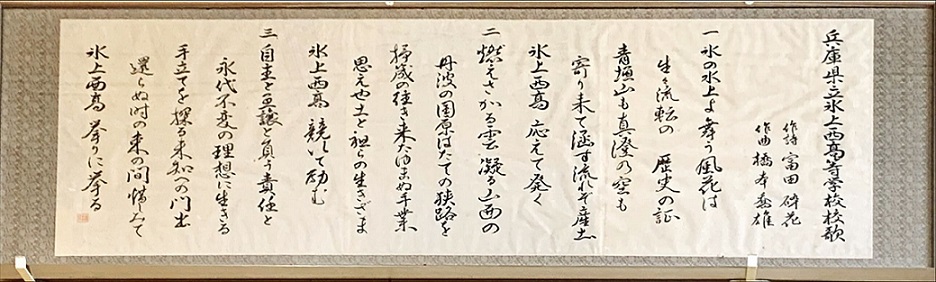 兵庫県立氷上西高等学校校歌
作詩 富田砕花
作曲 橋本
一 氷の水上よ舞う風花は
生々流転の 歴史の証
青垣山も真澄の空も
寄り来て涵す流れぞ産土
氷上西高 応えて発く
二 燃えさかる雲 凝る山西の
丹波の国原はたての狭路を
歳の往き来たゆまぬ手業
思え也土と祖らの生きざま
氷上西高 競いて励む
三 自主と互譲と負う責任と
永代不変の理想に生きる
手立てを探る未知への門出
還らぬ時の来の間惜みて
氷上西高 挙りに挙る